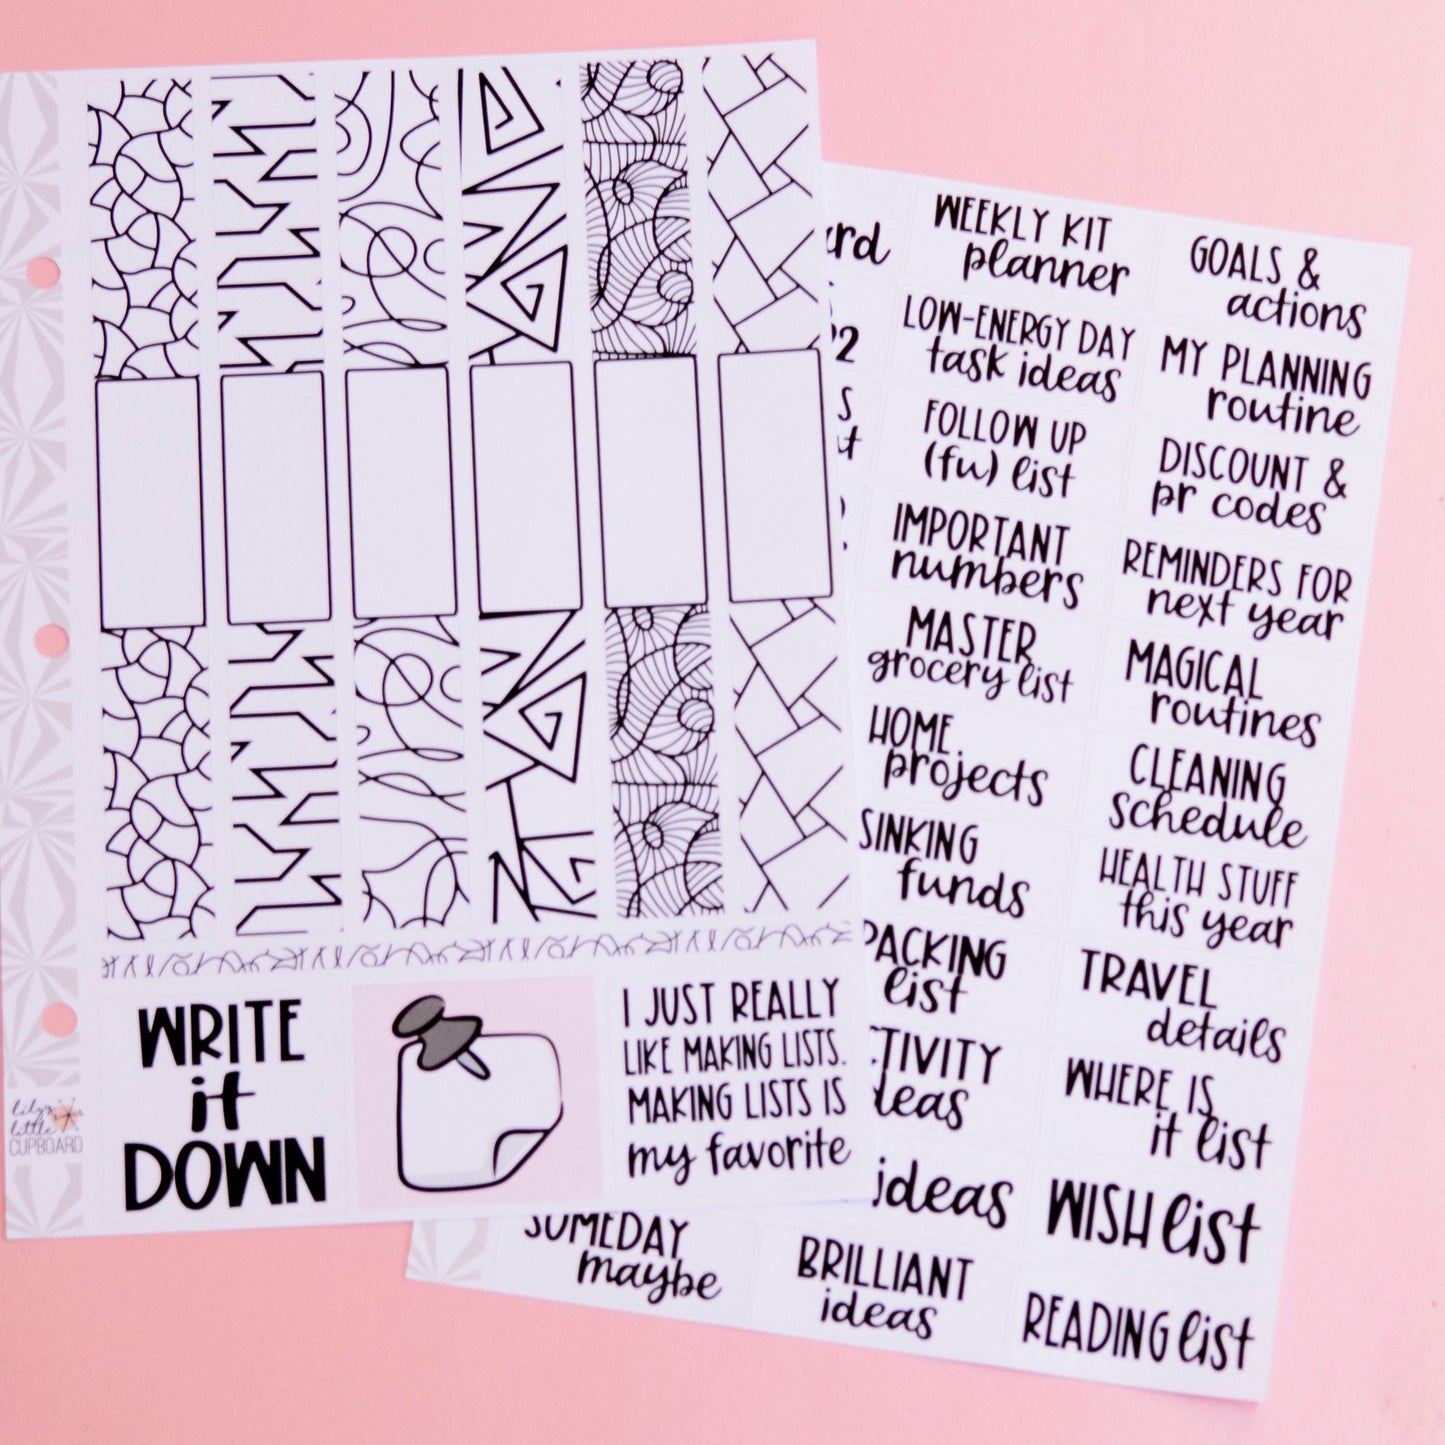 WRITE
it
DOWN
I JUST REALLY
LIKE MAKING LISTS.
MAKING LISTS IS
my favorite
lily's
little
CUPBOARD
WEEKLY KIT
planner
GOALS &
actions
LOW-ENERGY DAY
task ideas
MY PLANNING
routine
FOLLOW UP
(fu) list
DISCOUNT &
pr codes
IMPORTANT
numbers
REMINDERS FOR
next year
MASTER
grocery list
MAGICAL
routines
HOME
projects
CLEANING
schedule
SINKING
funds
HEALTH STUFF
this year
PACKING
list
TRAVEL
details
TIVITY
deas
WHERE IS
it list
ideas
WISH list
SOMEDAY
maybe
BRILLIANT
ideas
READING list